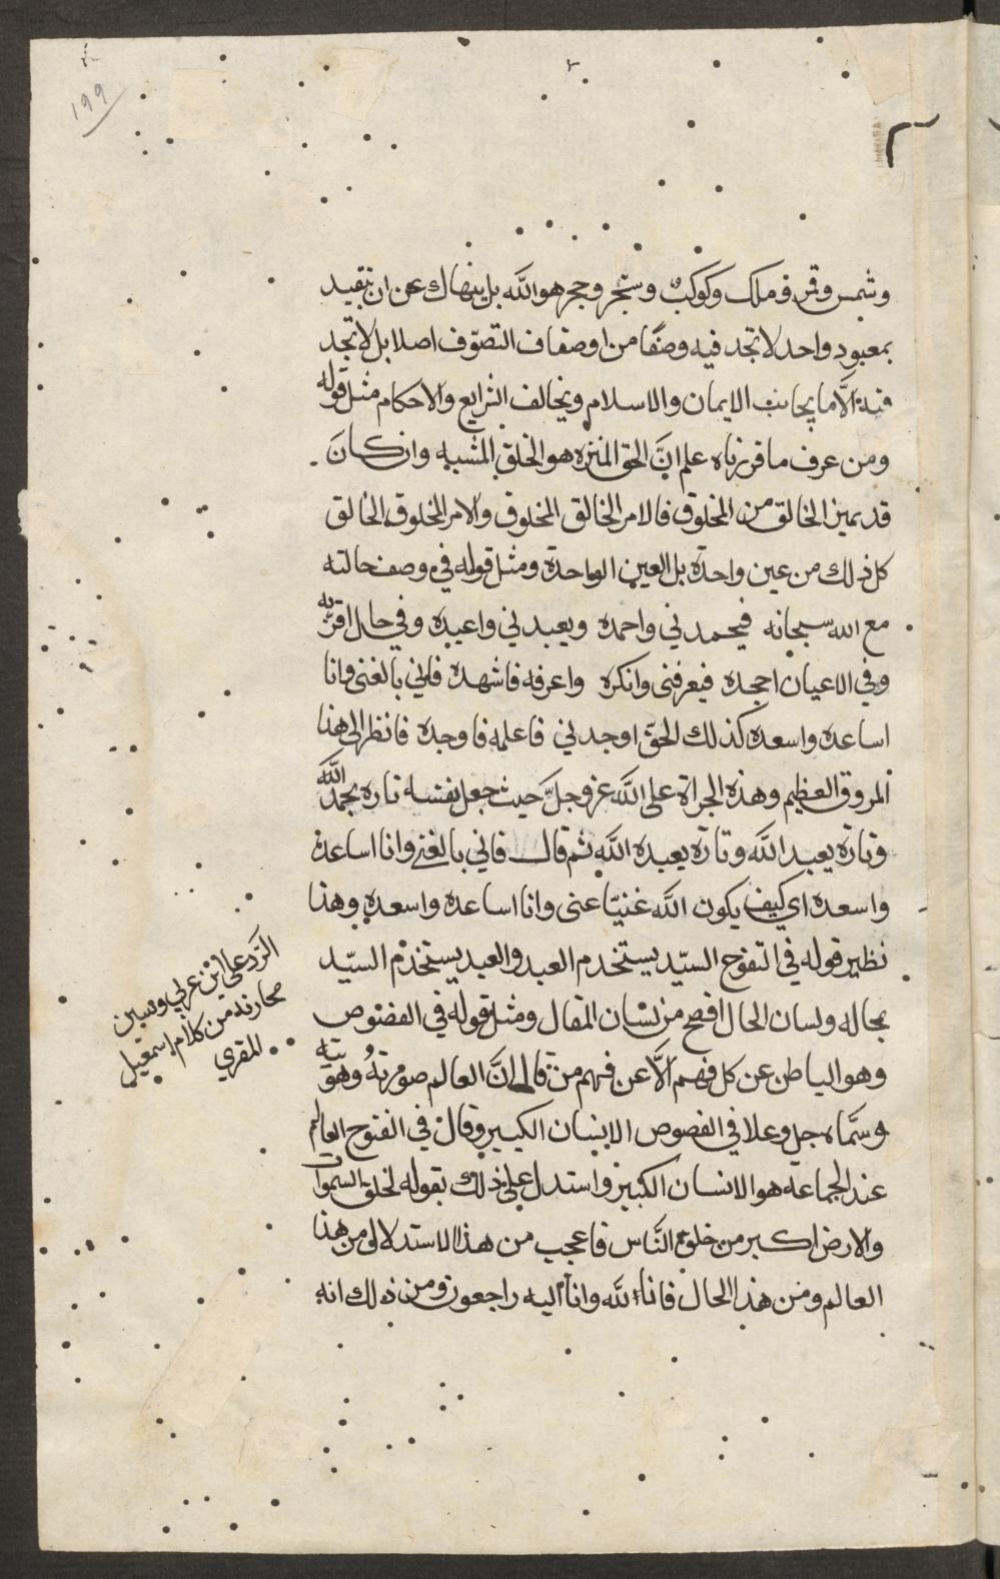 ١٩٩
وشمس وقمر وملك وكوكب وشجر وحجر هو الله بل ينهاك عن ان تتقيد
بمعبود واحد لا تجد فيه وصفا من اوصاف التصوّف اصلا بل لا تجد
فيه الّا ما يجانب الايمان والاسلام ويخالف الشرايع والاحكام مثل قوله
ومن عرف ما قررناه علم انّ الحق المنزه هو الخلق المشبه وان كان
قد تميز الخالق من المخلوق فالامر الخالق المخلوق والامر المخلوق الخالق
كل ذلك من عين واحدة بل العين الواحدة ومثل قوله في وصف حالته
مع الله سبحانه فيحمدني واحمده ويعبدني واعبده وفي حال اقرّ به
وفي الاعيان اجحده فيعرفني وانكره واعرفه فاشهده فاني بالغنى وانا
اساعده واسعده كذلك الحق اوجدني فاعلمه فاوجده فانظر الى هذا
المروق العظيم وهذه الجراة على الله عز وجلّ حيث جعل نفسه تارة يحمد الله
وتارة يعبد الله وتارة يعبده الله ثم قال فاني بالغنى وانا اساعده
واسعده اي كيف يكون الله غنيّا عني وانا اساعده واسعده وهذا
نظير قوله في الفتوح السيّد يستخدم العبد والعبد يستخدم السيّد
بحاله ولسان الحال افصح من لسان المقال ومثل قوله في الفصوص
وهو الباطن عن كل فهم الّا عن فهم من قال انّ العالم صورته وهويّته
وسمّاه جل وعلا في الفصوص الانسان الكبير وقال في الفتوح العالم
عند الجماعة هو الانسان الكبير واستدل على ذلك بقوله لخلق السموات
والارض اكبر من خلق النّاس فاعجب من هذا الاستدلال ومن هذا
العالم ومن هذا الحال فانا لله وانا اليه راجعون ومن ذلك انه
الرّد على ابن عربي
من كلام اسمعيل
المقري